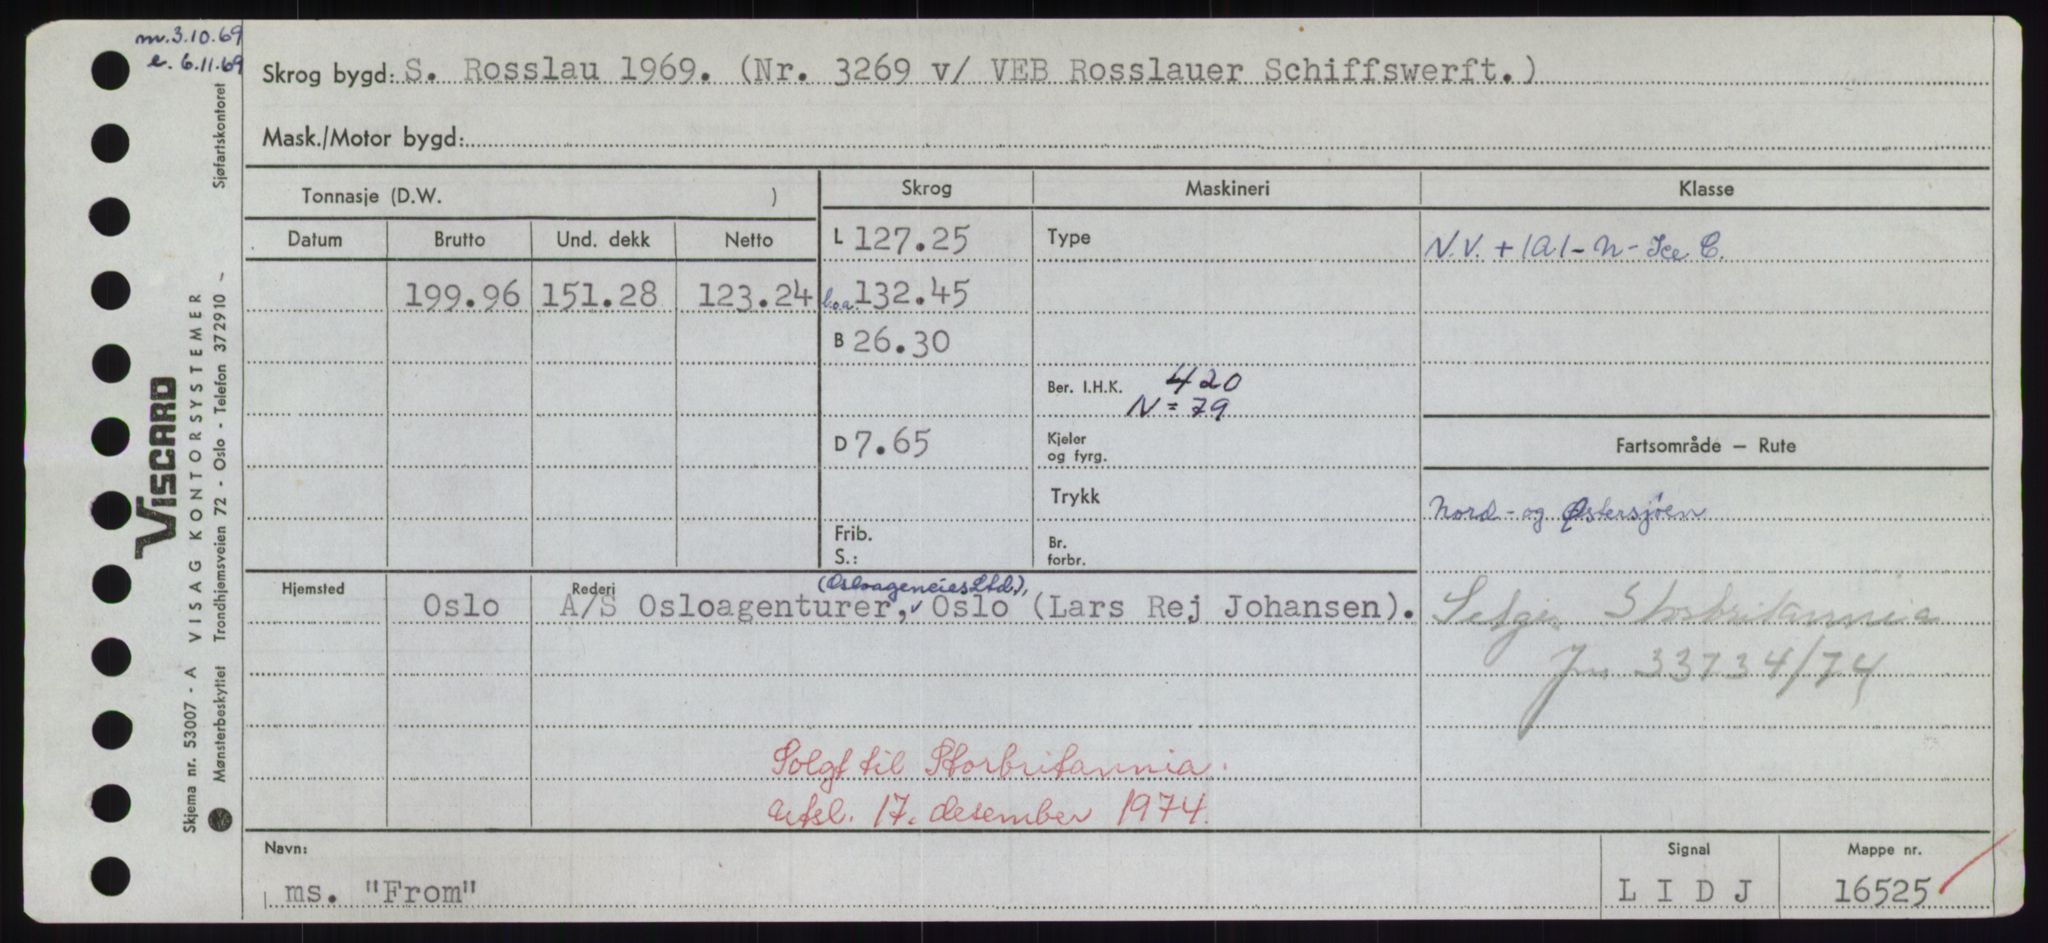 nv. 3.10.69
e. 6.11.69
Skrog bygd: S. Rosslau 1969. (Nr. 3269 v/ VEB Rosslauer Schiffswerft.)
Mask./Motor bygd:
Tonnasje (D.W. )
Skrog
Maskineri
Klasse
Datum
Brutto
Und. dekk
Netto
L 127.25
Type
N.V. + 1A1 - N - Ice C.
199.96 151.28 123.24
l.o.a. 132.45
B 26.30
Ber. I.H.K. 420
N = 79
D 7.65
Kjeler
og fyrg.
Fartsområde – Rute
Trykk
Nord- og Østersjöen
Frib.
S.:
Br.
forbr.
Hjemsted
Rederi
(Osloagencies Ltd.),
Oslo
A/S Osloagenturer, Oslo (Lars Rej Johansen).
Selges Storbritannia
Jnr 33734/74
Solgt til Storbritannia.
Utsl. 17. desember 1974.
Navn:
ms. "From"
Signal
L I D J
Mappe nr.
16525
VISCARD
VISAG KONTORSYSTEMER
Sjøfartskontoret
Skjema nr. 53007 - A
Trondhjemsveien 72 - Oslo - Telefon 372910 -
Mønsterbeskyttet